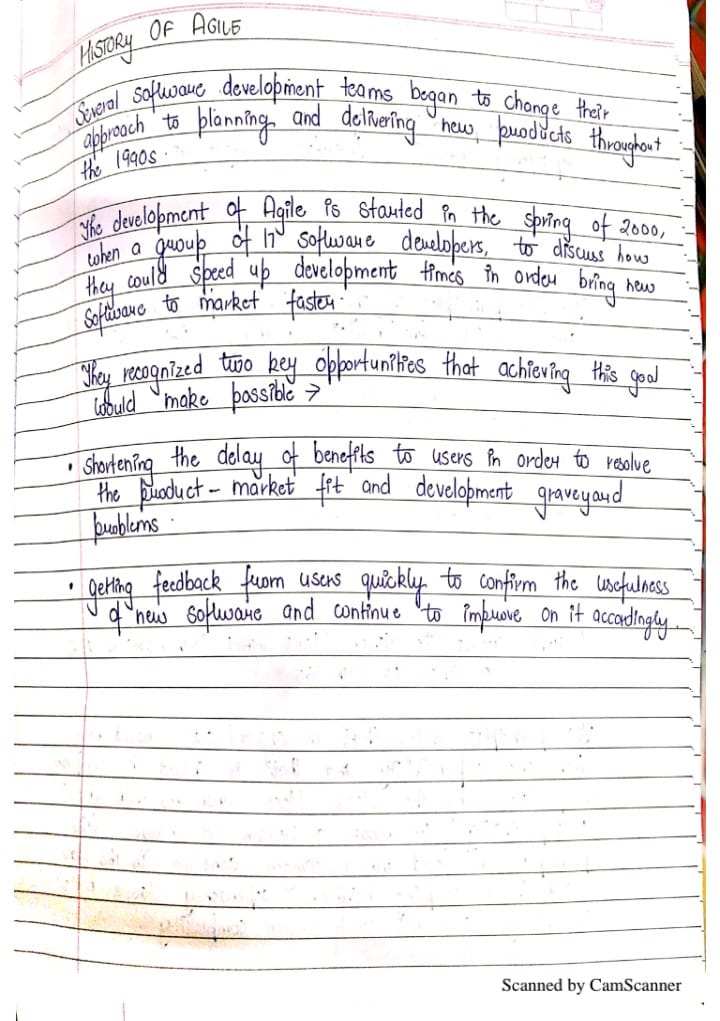 HISTORY OF AGILE
Several software development teams began to change their
approach to planning and delivering new products throughout
the 1990s.
The development of Agile is started in the spring of 2000,
when a group of 17 software developers, to discuss how
they could speed up development times in order bring new
software to market faster.
They recognized two key opportunities that achieving this goal
would make possible →
• Shortening the delay of benefits to users in order to resolve
the product - market fit and development graveyard
problems.
• getting feedback from users quickly to confirm the usefulness
of new software and continue to improve on it accordingly.
Scanned by CamScanner